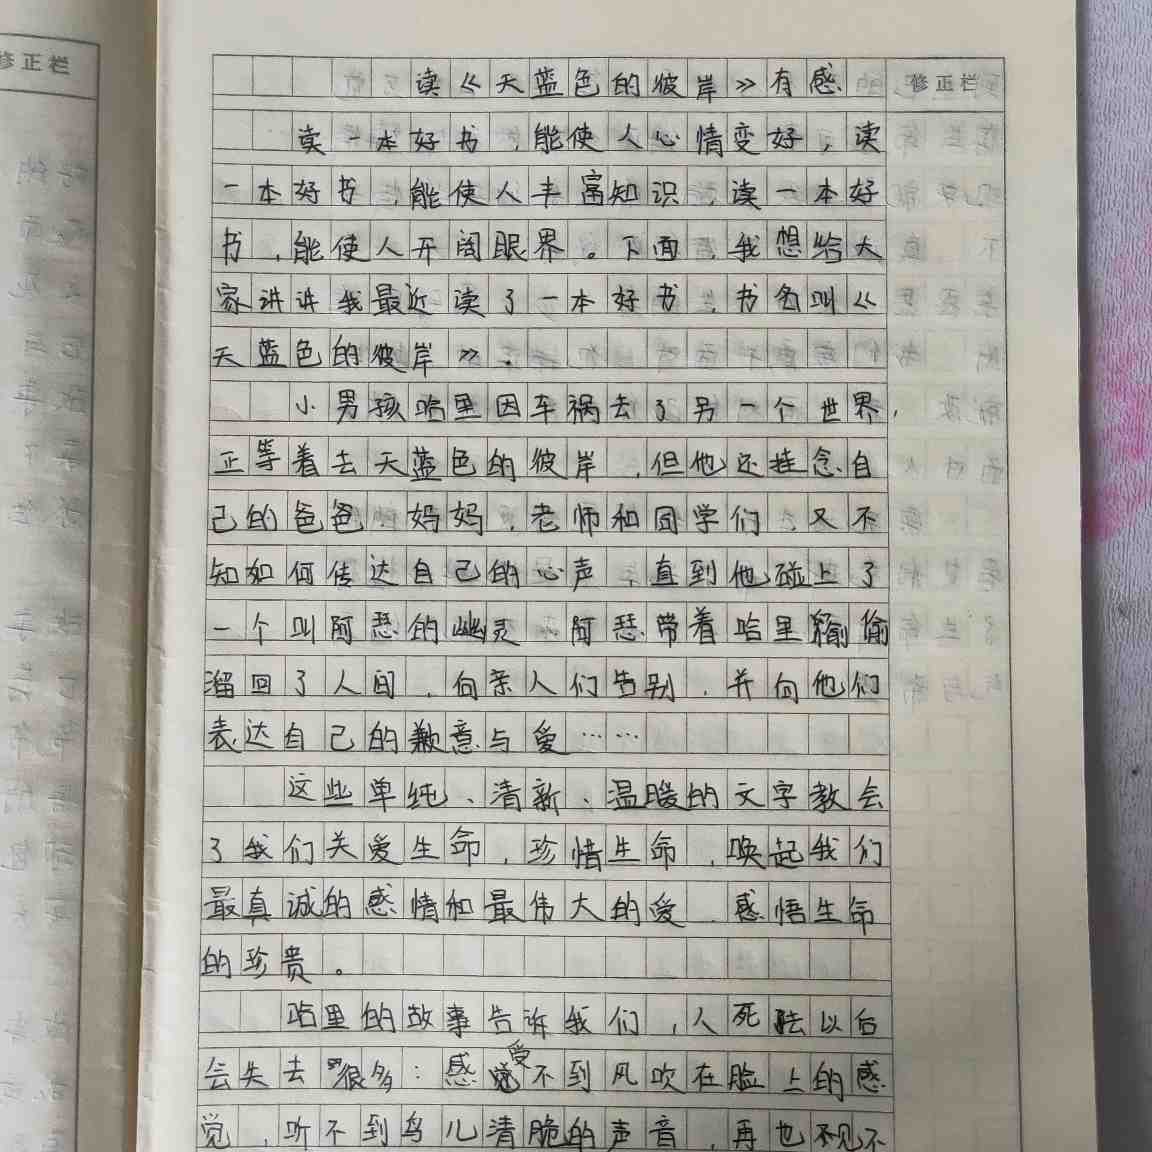 修正栏
读《天蓝色的彼岸》有感
修正栏
读一本好书，能使人心情变好，读
一本好书，能使人丰富知识，读一本好
书，能使人开阔眼界。下面，我想给大
家讲讲我最近读了一本好书，书名叫《
天蓝色的彼岸》。
小男孩哈里因车祸去了另一个世界，
正等着去天蓝色的彼岸，但他还挂念自
己的爸爸、妈妈，老师和同学们，又不
知如何传达自己的心声，直到他碰上了
一个叫阿瑟的幽灵，阿瑟带着哈里偷偷
溜回了人间，向亲人们告别，并向他们
表达自己的歉意与爱……
这些单纯、清新、温暖的文字教会
了我们关爱生命，珍惜生命，唤起我们
最真诚的感情和最伟大的爱，感悟生命
的珍贵。
哈里的故事告诉我们，人死去以后
会失去很多：感受不到风吹在脸上的感
觉，听不到鸟儿清脆的声音，再也不见不